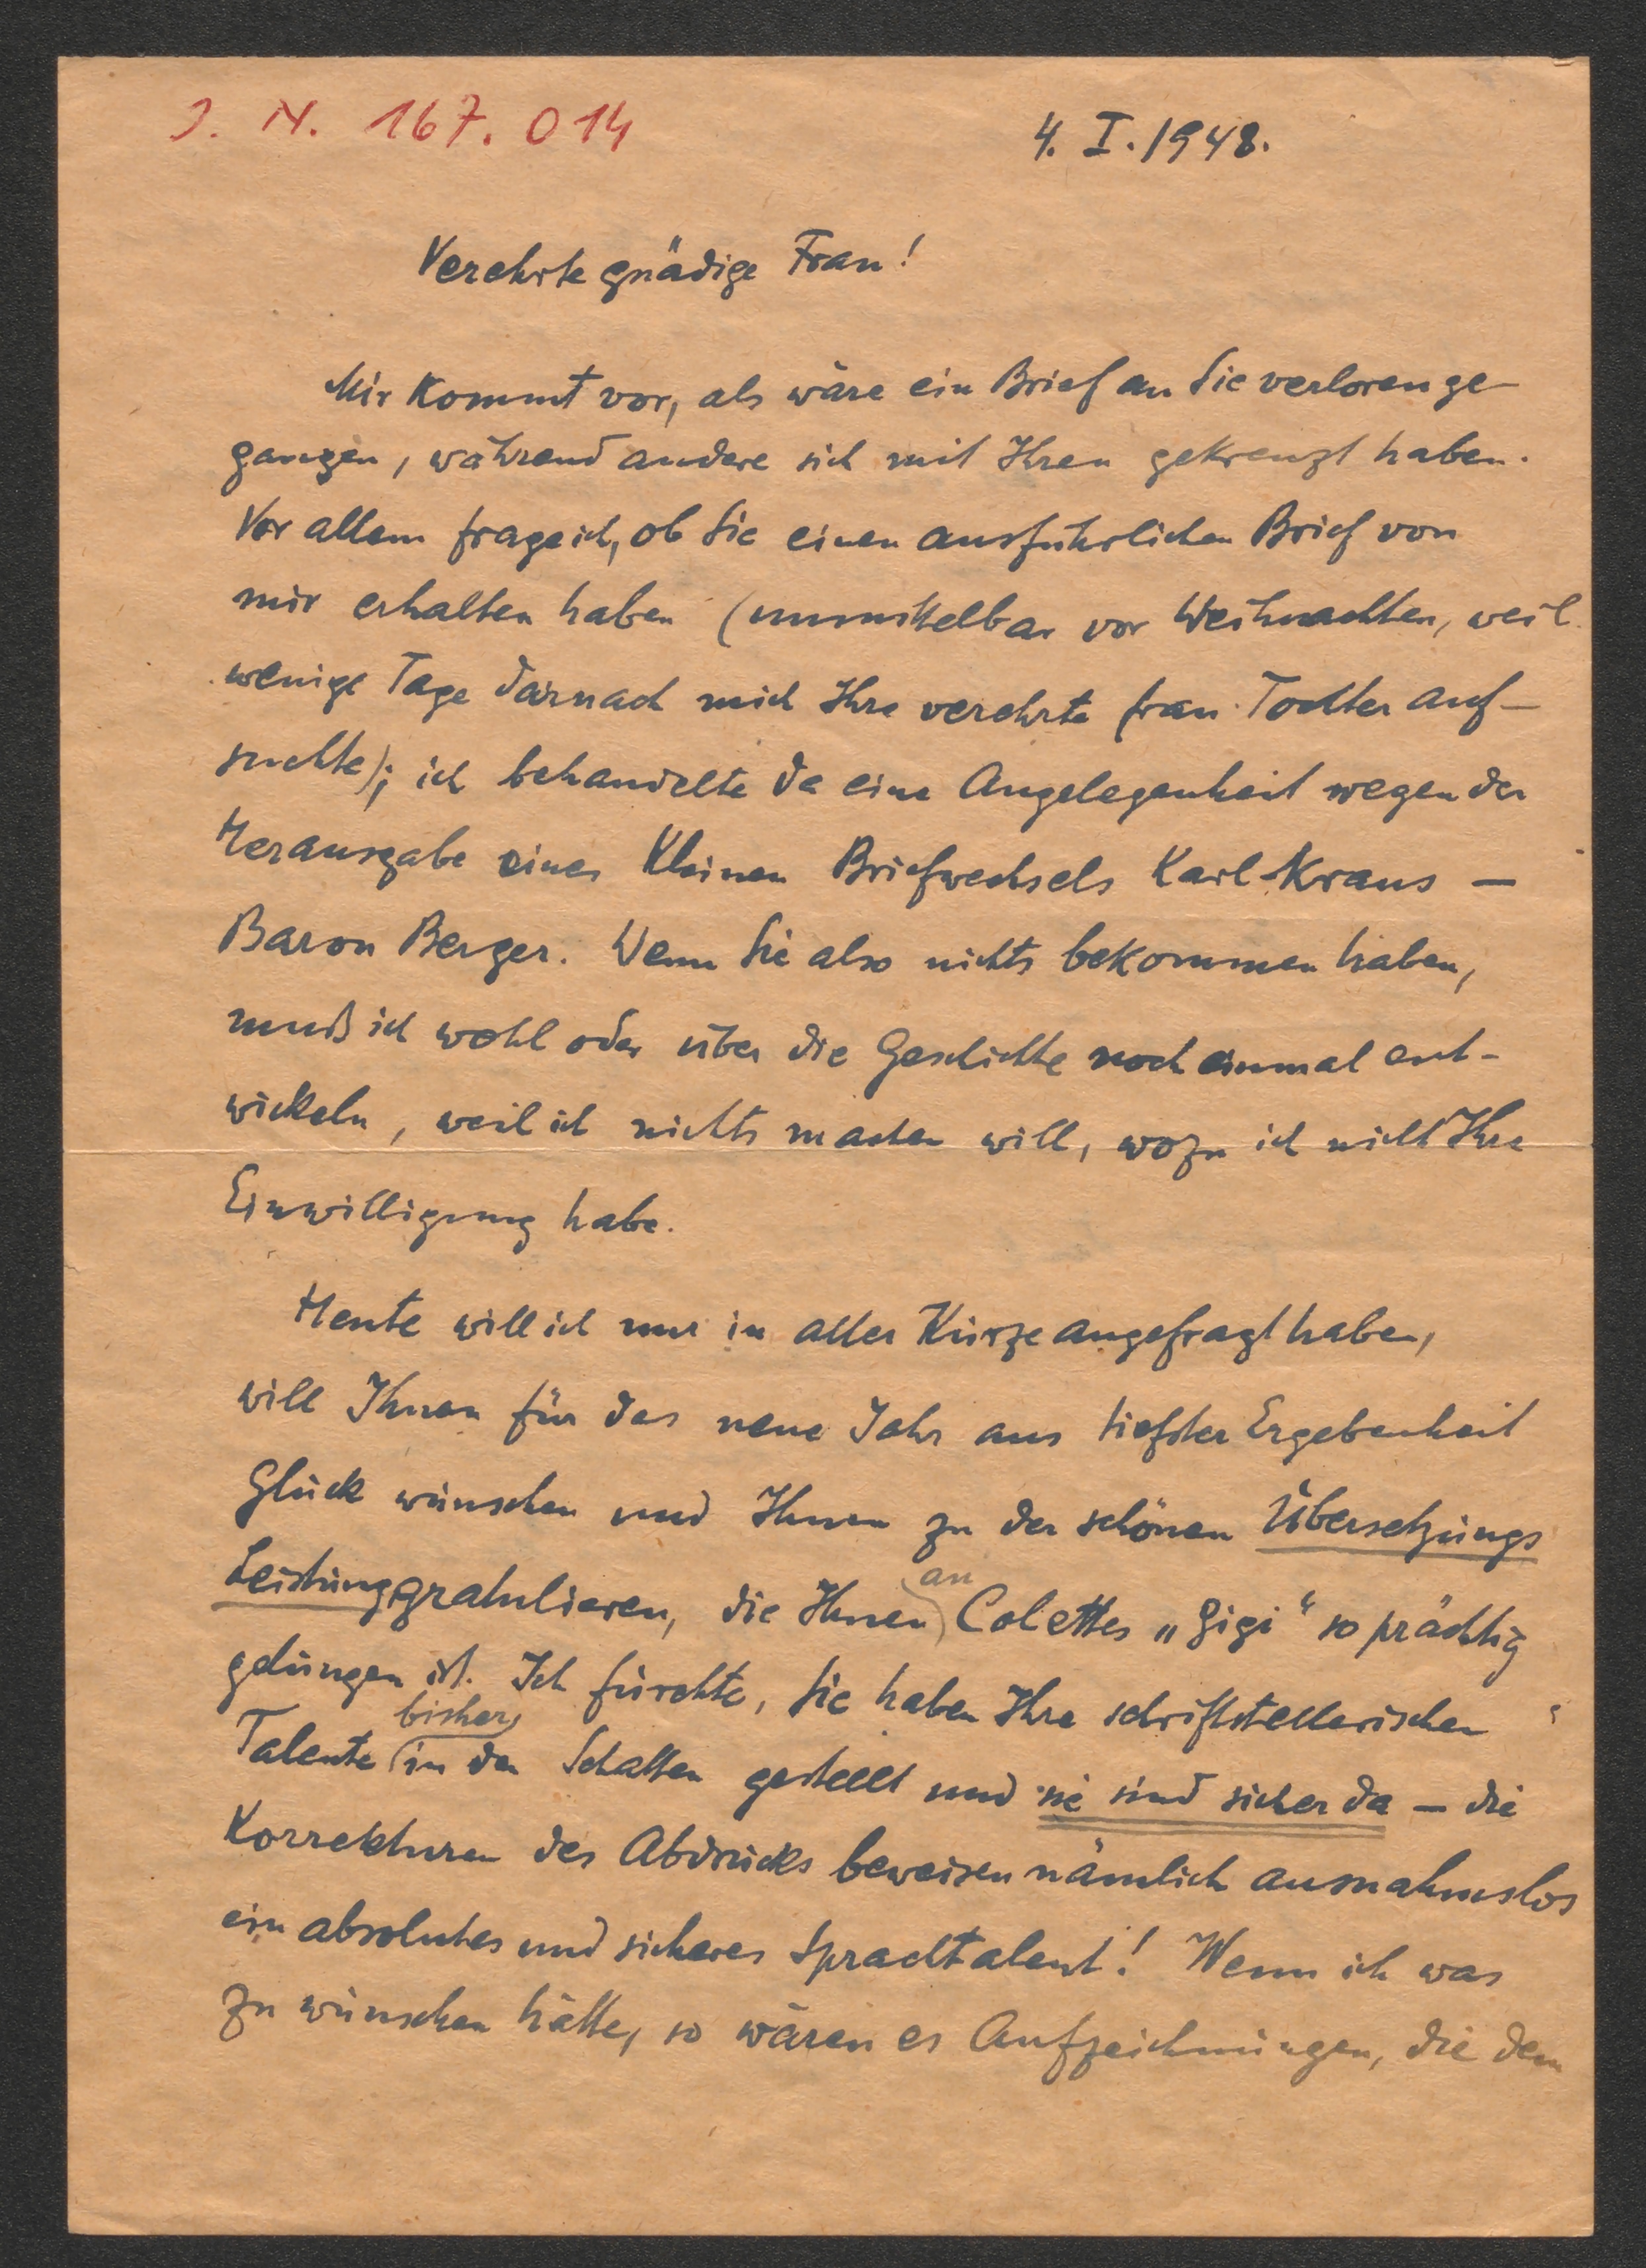 J. N. 167.014
4. I. 1948.
Verehrte gnädige Frau!
Mir kommt vor, als wäre ein Brief an Sie verloren ge-
gangen, während andere sich mit Ihren gekreuzt haben.
Vor allem frage ich, ob Sie einen ausführlichen Brief von
mir erhalten haben (unmittelbar vor Weihnachten, weil
wenige Tage darnach mich Ihre verehrte Frau Tochter auf-
suchte); ich behandelte da eine Angelegenheit wegen der
Herausgabe eines kleinen Briefwechsels Karl Kraus —
Baron Berger. Wenn Sie also nichts bekommen haben,
muß ich wohl oder über die Geschichte noch einmal ent-
wickeln, weil ich nichts machen will, wozu ich nicht Ihre
Einwilligung habe.
Heute will ich nur in aller Kürze angefragt haben,
will Ihnen für das neue Jahr aus tiefster Ergebenheit
Glück wünschen und Ihnen zu der schönen Übersetzungs
Leistung gratulieren, die Ihnen an Colettes „Gigi“ so prächtig
gelungen ist. Ich fürchte, Sie haben Ihre schriftstellerischen
Talente bisher in den Schatten gestellt und sie sind sicher da — die
Korrekturen des Abdrucks beweisen nämlich ausnahmslos
ein absolutes und sicheres Sprachtalent! Wenn ich was
zu wünschen hätte, so wären es Aufzeichnungen, die dem